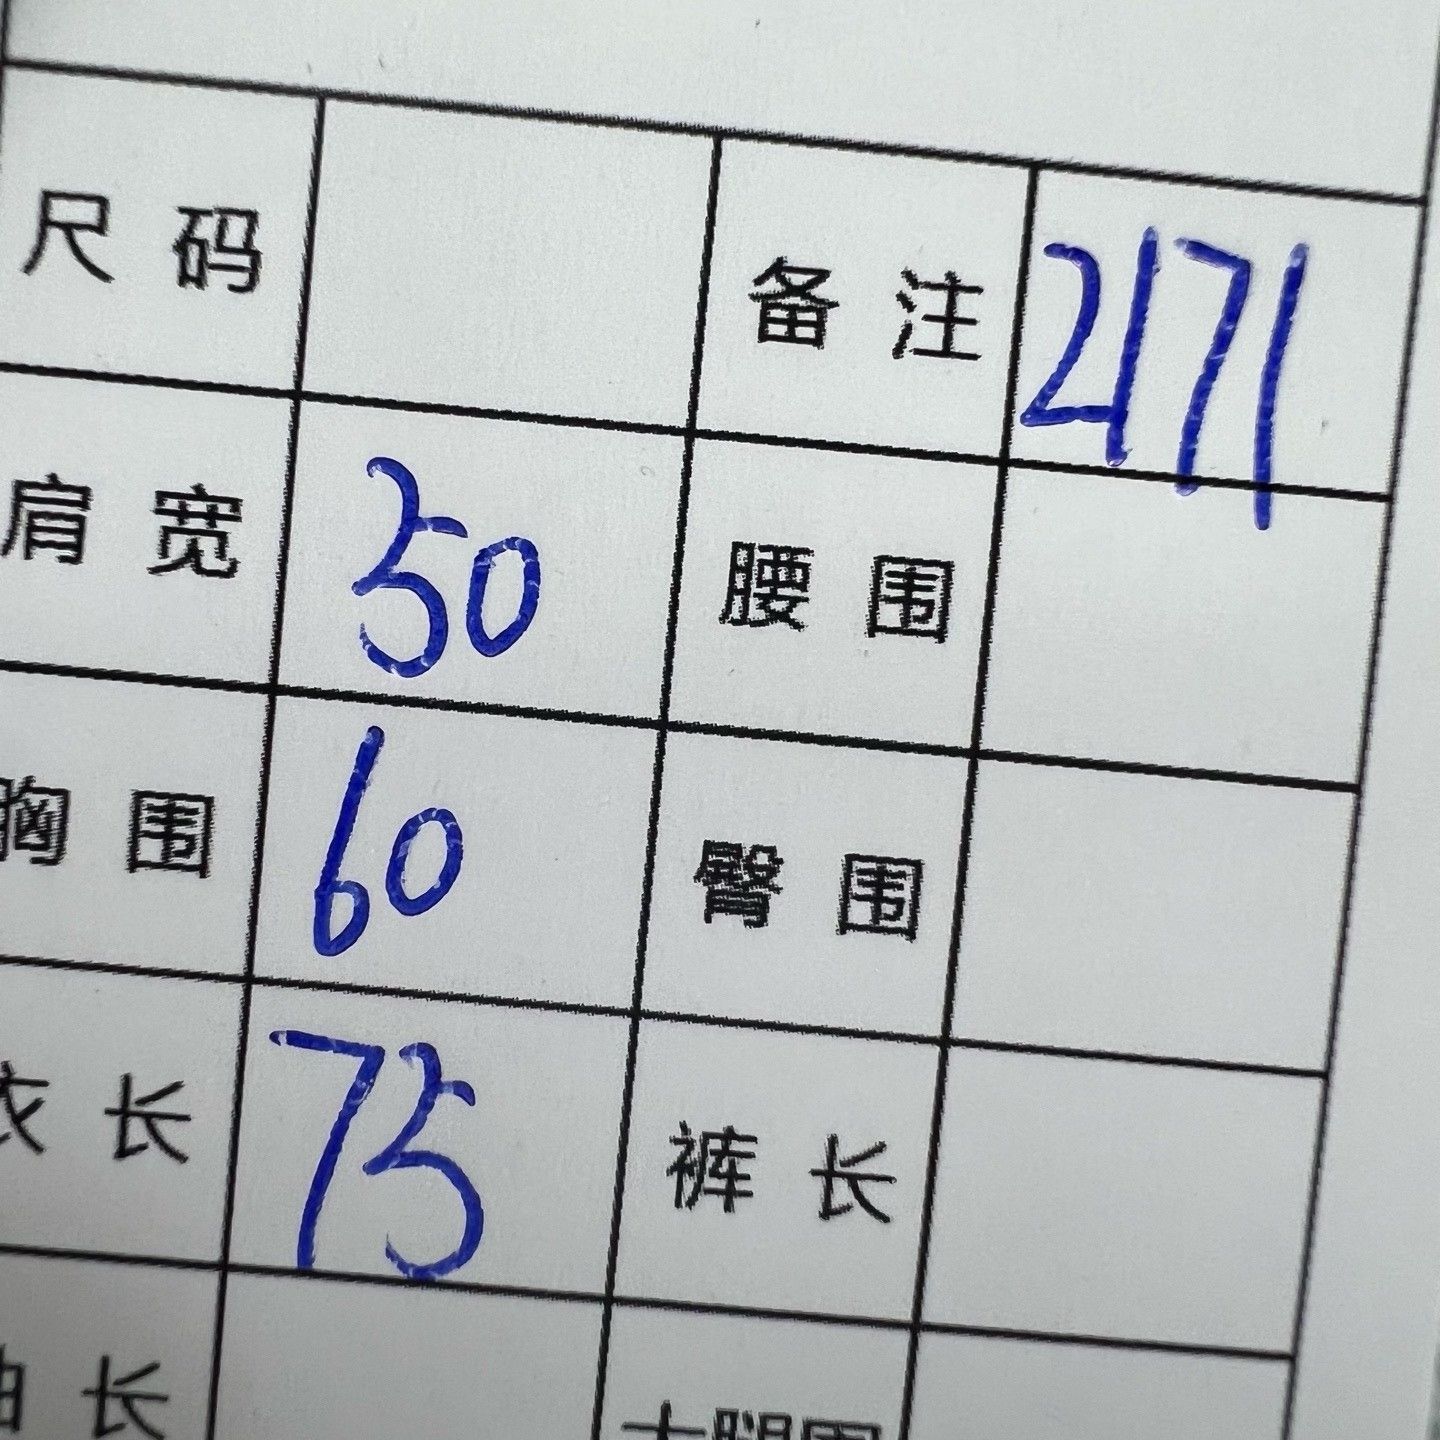 尺码 备注 2171
肩宽 50 腰围
胸围 60 臀围
衣长 75 裤长
长 大腿围